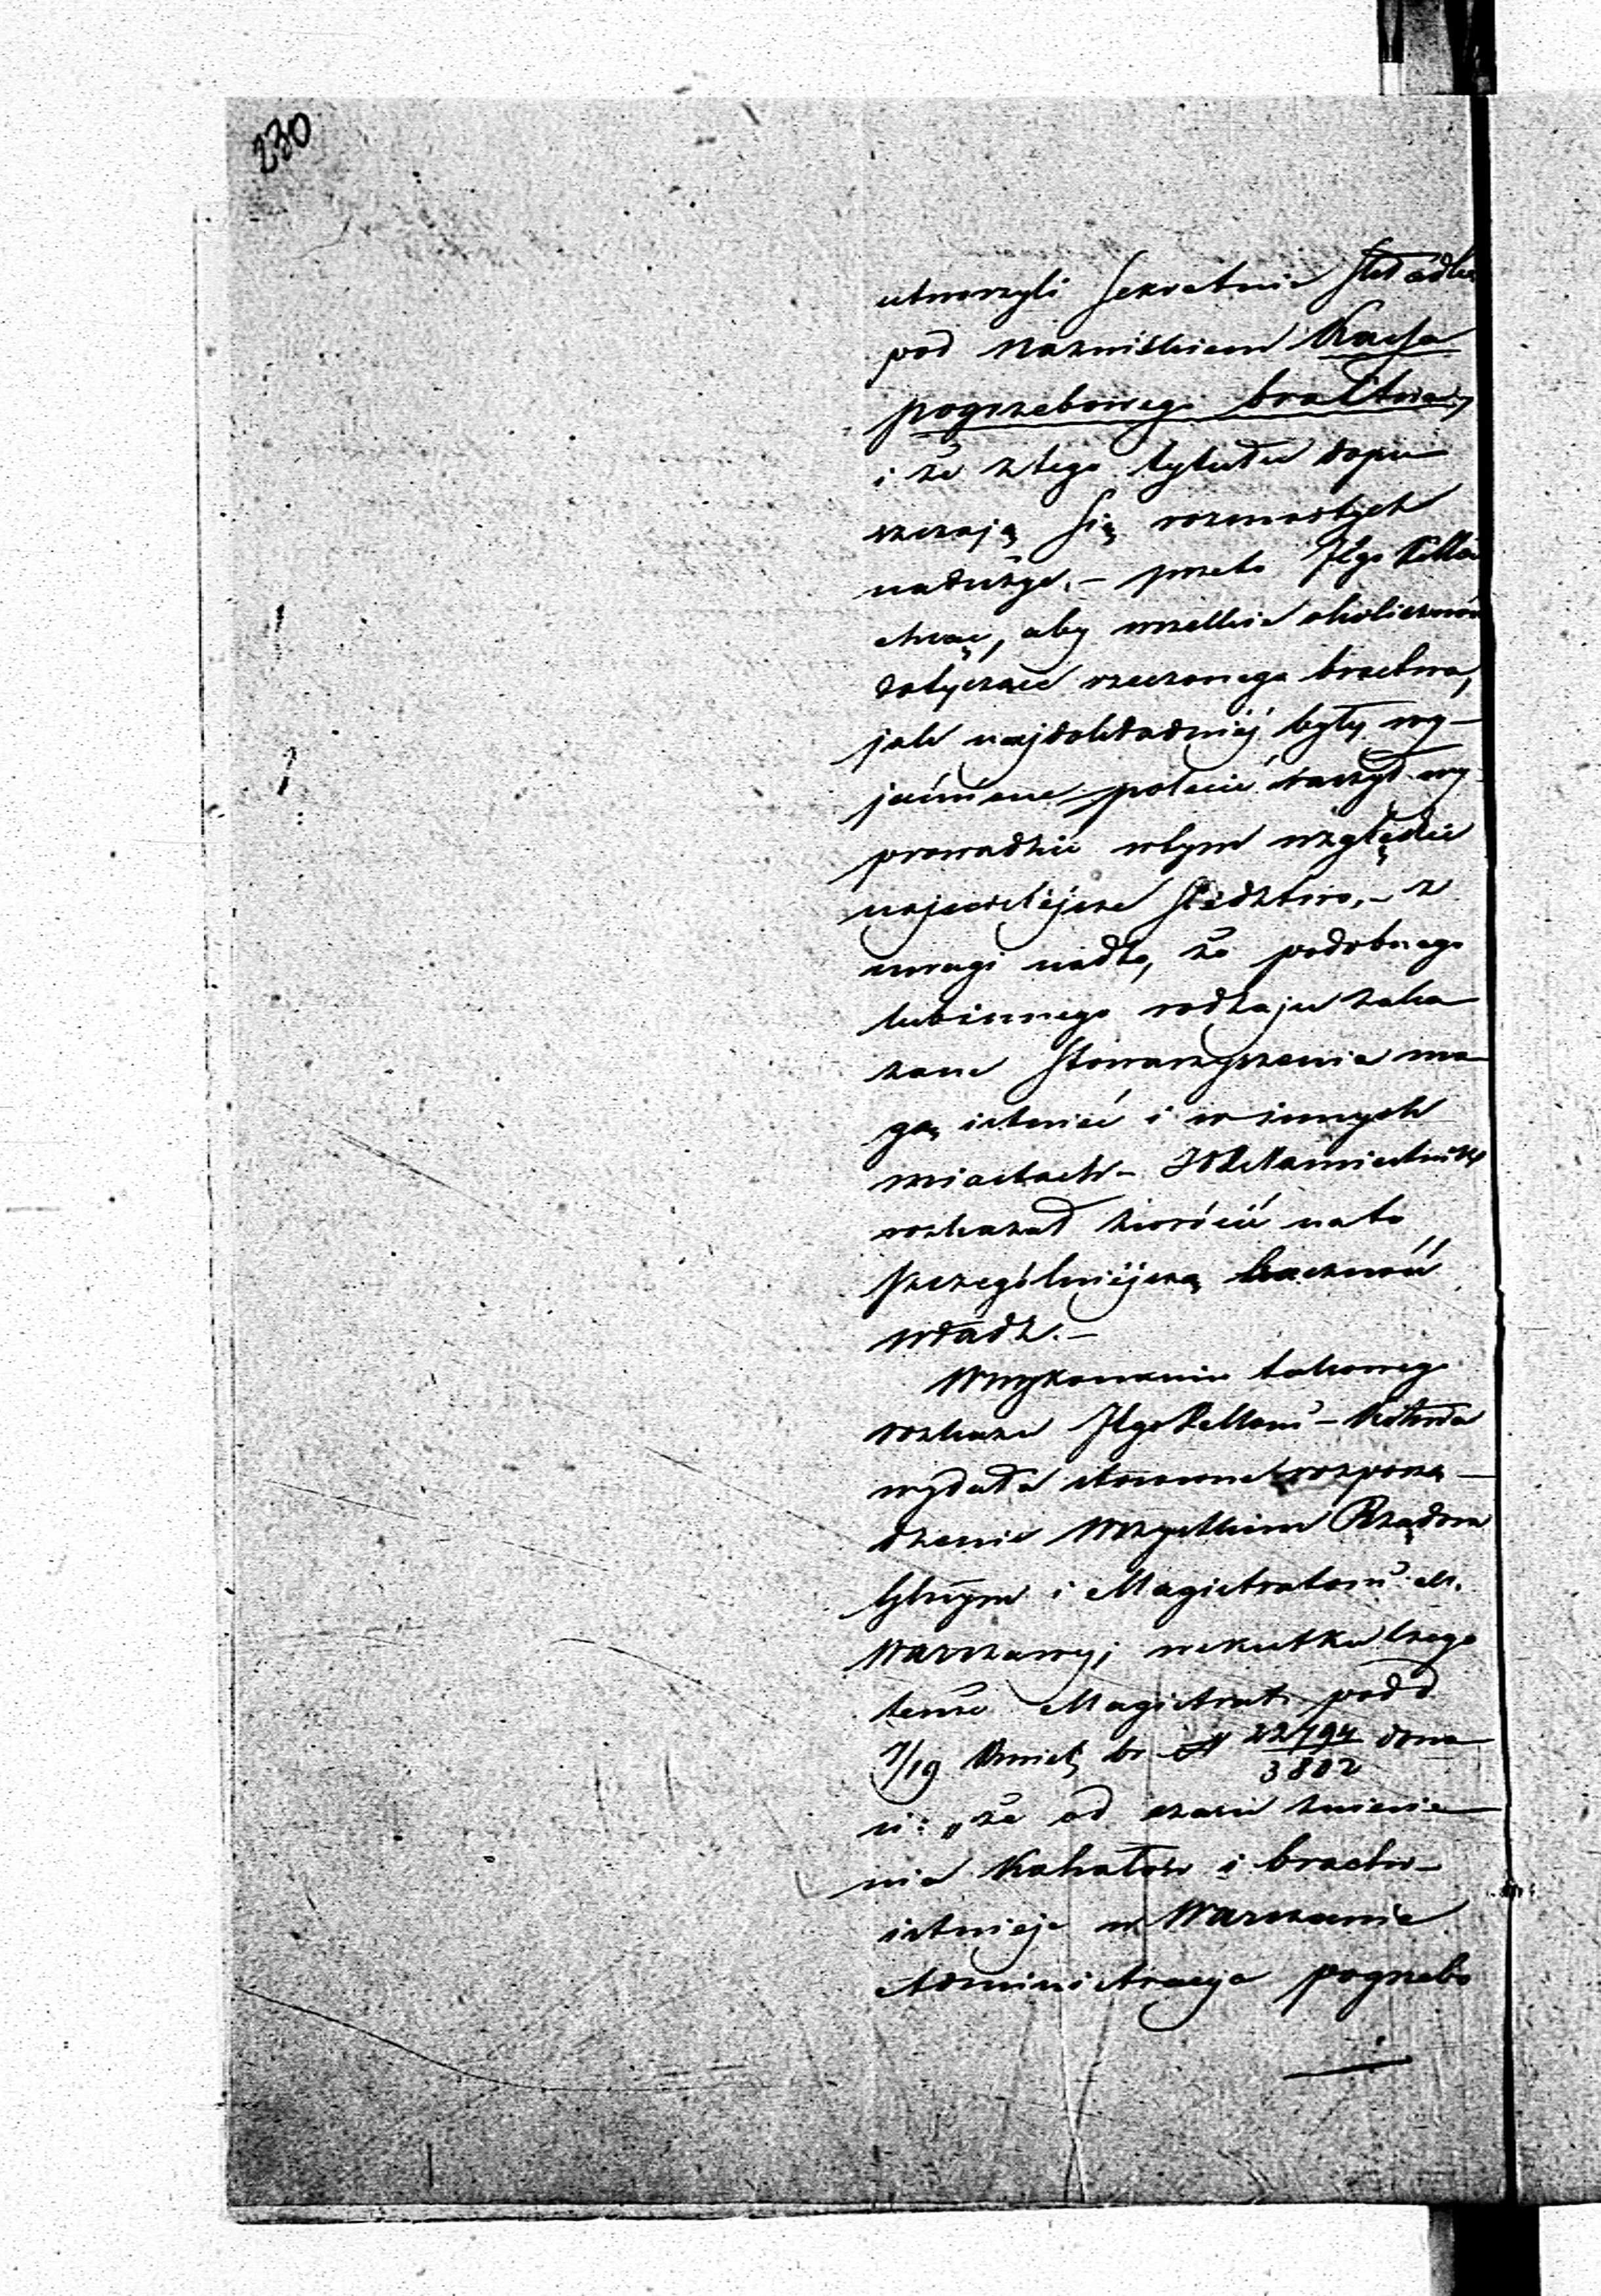 230
utworzyli sekretnie składkę
pod nazwiskiem Kassa
pogrzebowego bractwa,
i że z tego tytułu dopu
szczają się rozmaitych
nadużyć. – przeto JKgo
chcąc, aby wszelkie okoliczności
dotyczące rzeczonego bractwa,
jak najdokładniéj były wy–
jaśnione, polecić raczył wy
prowadzić w tym względzie
najściślejsze śledztwo, – z
uwagi nadto, że podobnego
lub innego rodzaju zaka
zane stowarzyszenia mo
gą istnieć i w innych
miastach – JO Xże Namiestnik
rozkazał zwrócić na to
szczególniéjszą baczność
władz. –
W wykonaniu takowego
rozkazu
wydała stosowne rozporzą–
dzenie wszystkim Rządom
Gbnym i Magistratowi M.
Warszawy; w skutku czego
tenże Magistrat pod d
7/19 br N 22794/3802 dono
si: „że od czasu zniesie
nia Kahałów i bractw –
istnieje w Warszawie
Administracya pogrzebo